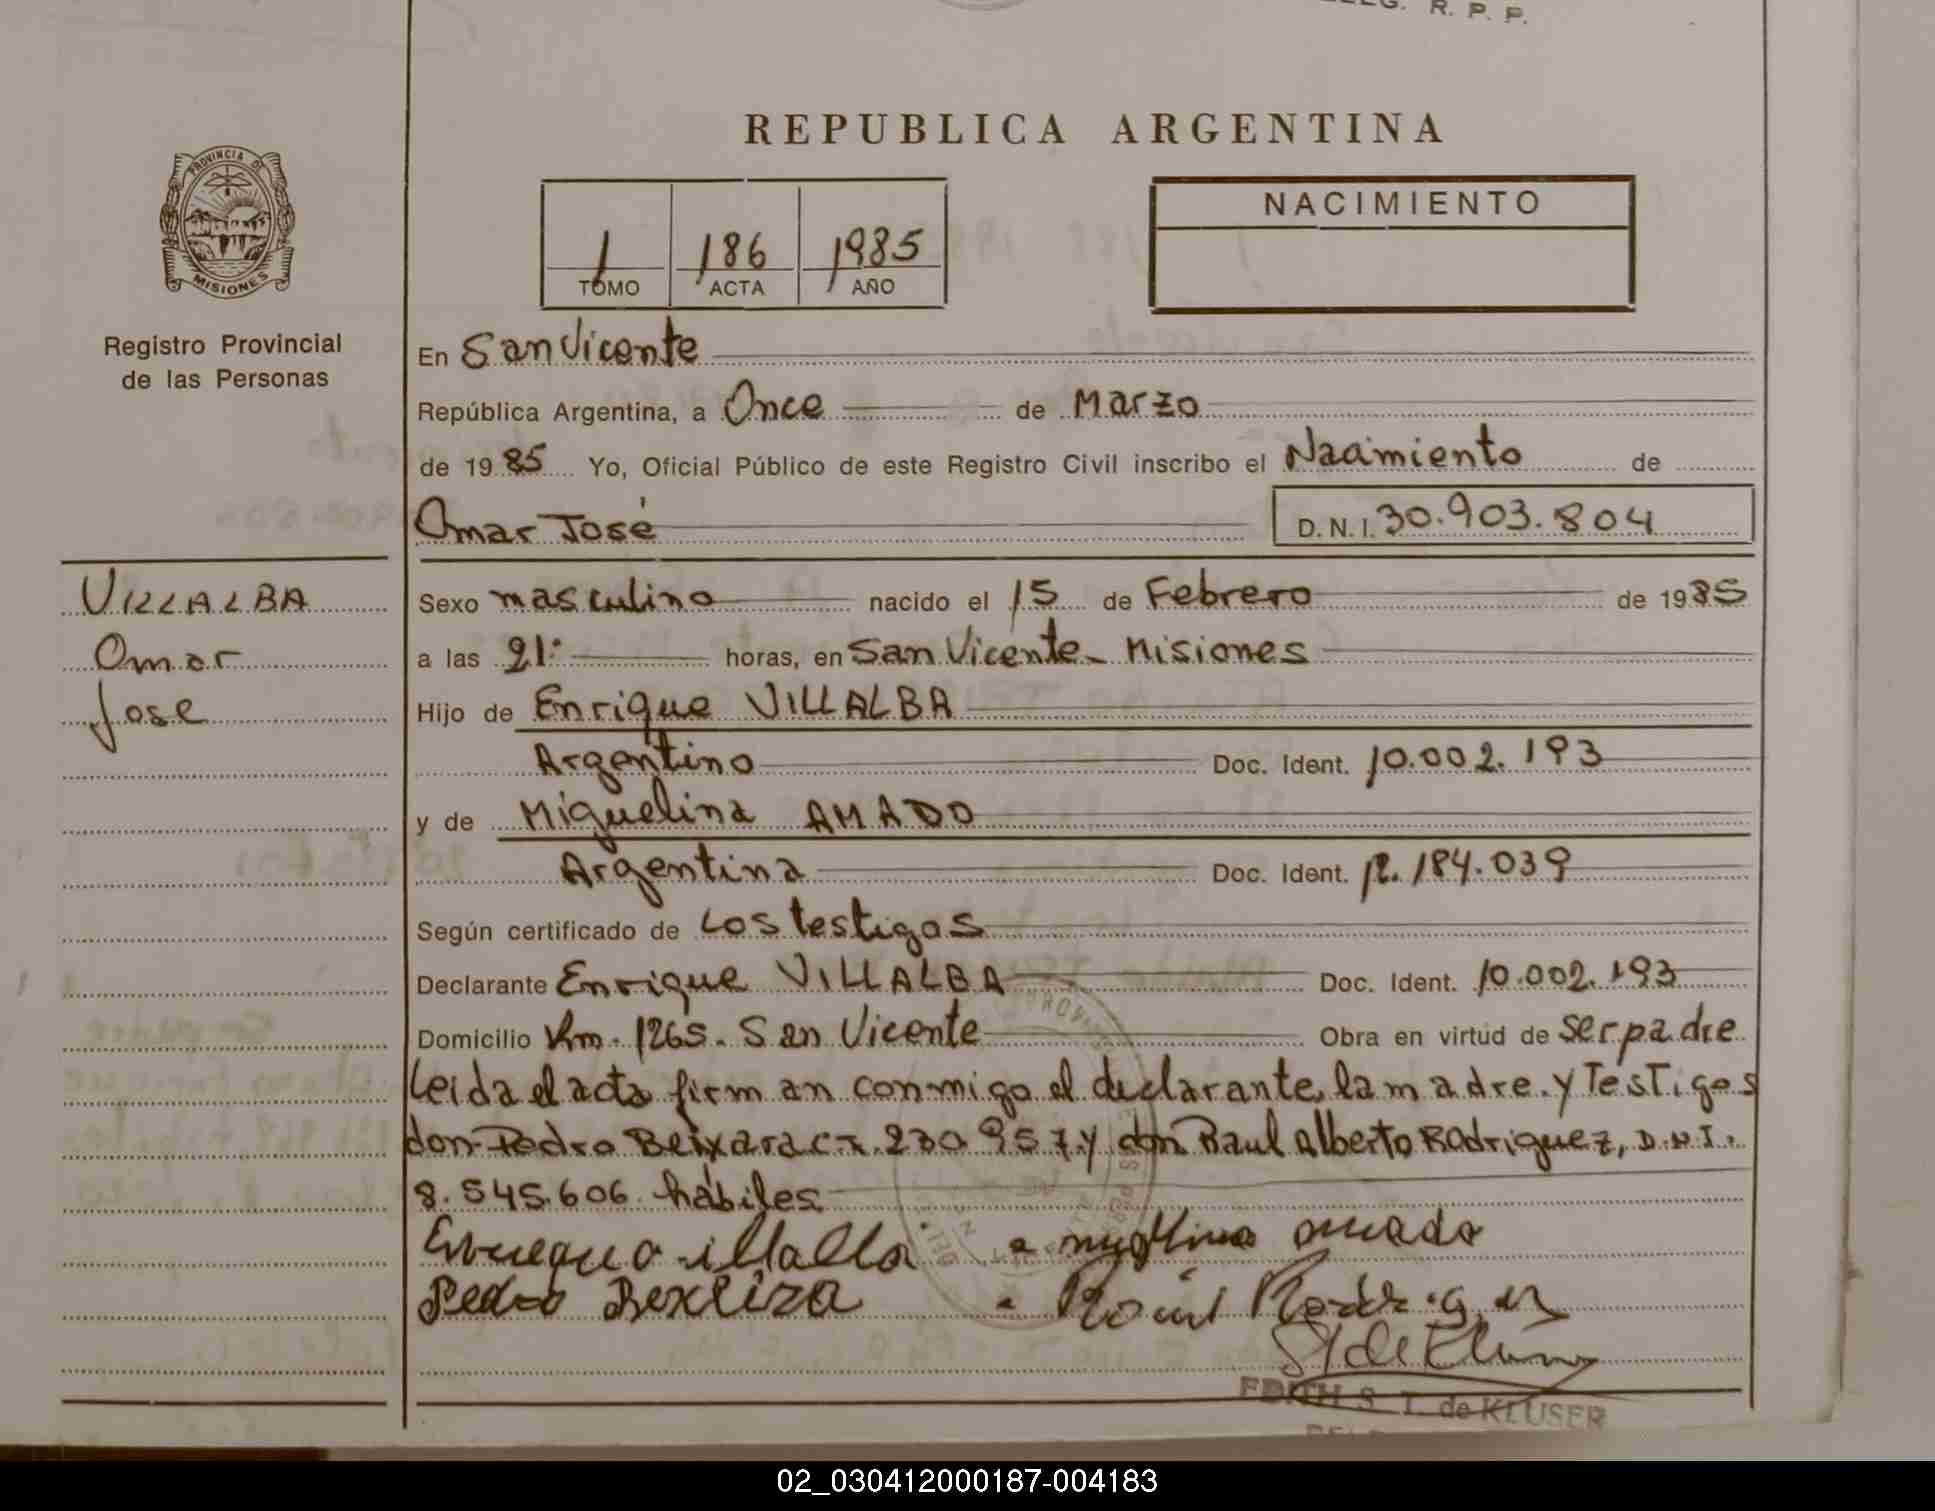 R. P. P.
REPUBLICA ARGENTINA
PROVINCIA DE
MISIONES
Registro Provincial
de las Personas
1 186 1985
TOMO ACTA AÑO
NACIMIENTO
En San Vicente
República Argentina, a Once de Marzo
de 1985 Yo, Oficial Público de este Registro Civil inscribo el Nacimiento de
Omar José D.N.I. 30.903.804
VILLALBA
Omar
Jose
Sexo masculino nacido el 15 de Febrero de 1985
a las 21: horas, en San Vicente - Misiones
Hijo de Enrique VILLALBA
Argentino Doc. Ident. 10.002.193
y de Miguelina AMADO
Argentina Doc. Ident. 12.184.039
Según certificado de Los testigos
Declarante Enrique VILLALBA Doc. Ident. 10.002.193
Domicilio Km. 1265. San Vicente Obra en virtud de ser padre
Leida el acta firman conmigo el declarante, la madre y Testigos
don Pedro Beixara C.I. 230.957 y don Raul Alberto Rodriguez, D.N.I.
8.545.606 hábiles
Pedro
EDITH S. T. de KLUSER
02_030412000187-004183